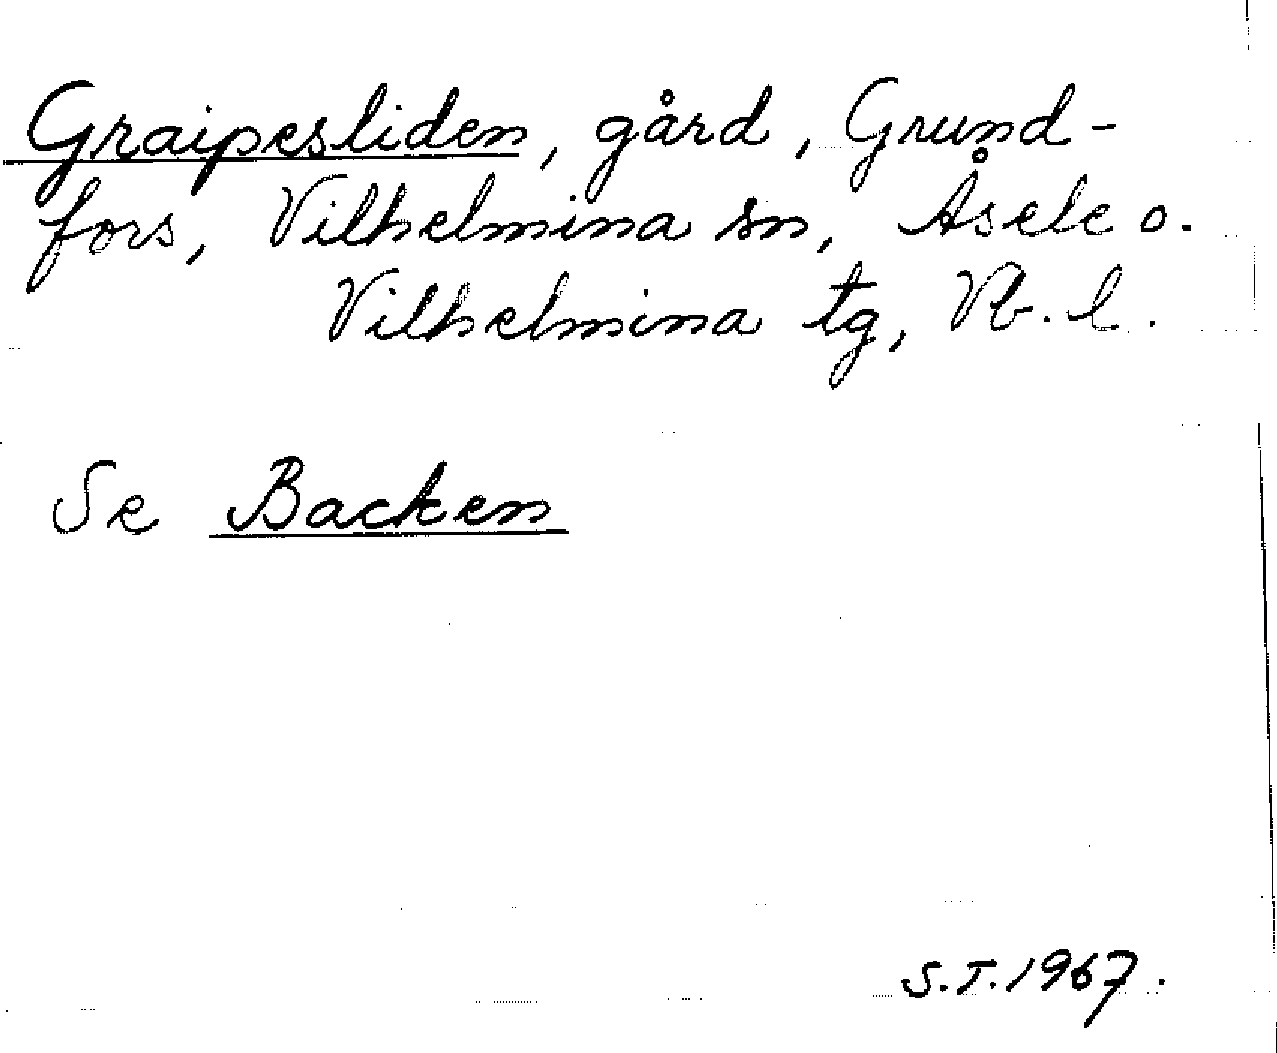 Graipesliden, gård, Grund-
fors, Vilhelmina sn, Åsele o.
Vilhelmina tg, Vb. l.
Se Backen
S.T. 1967.